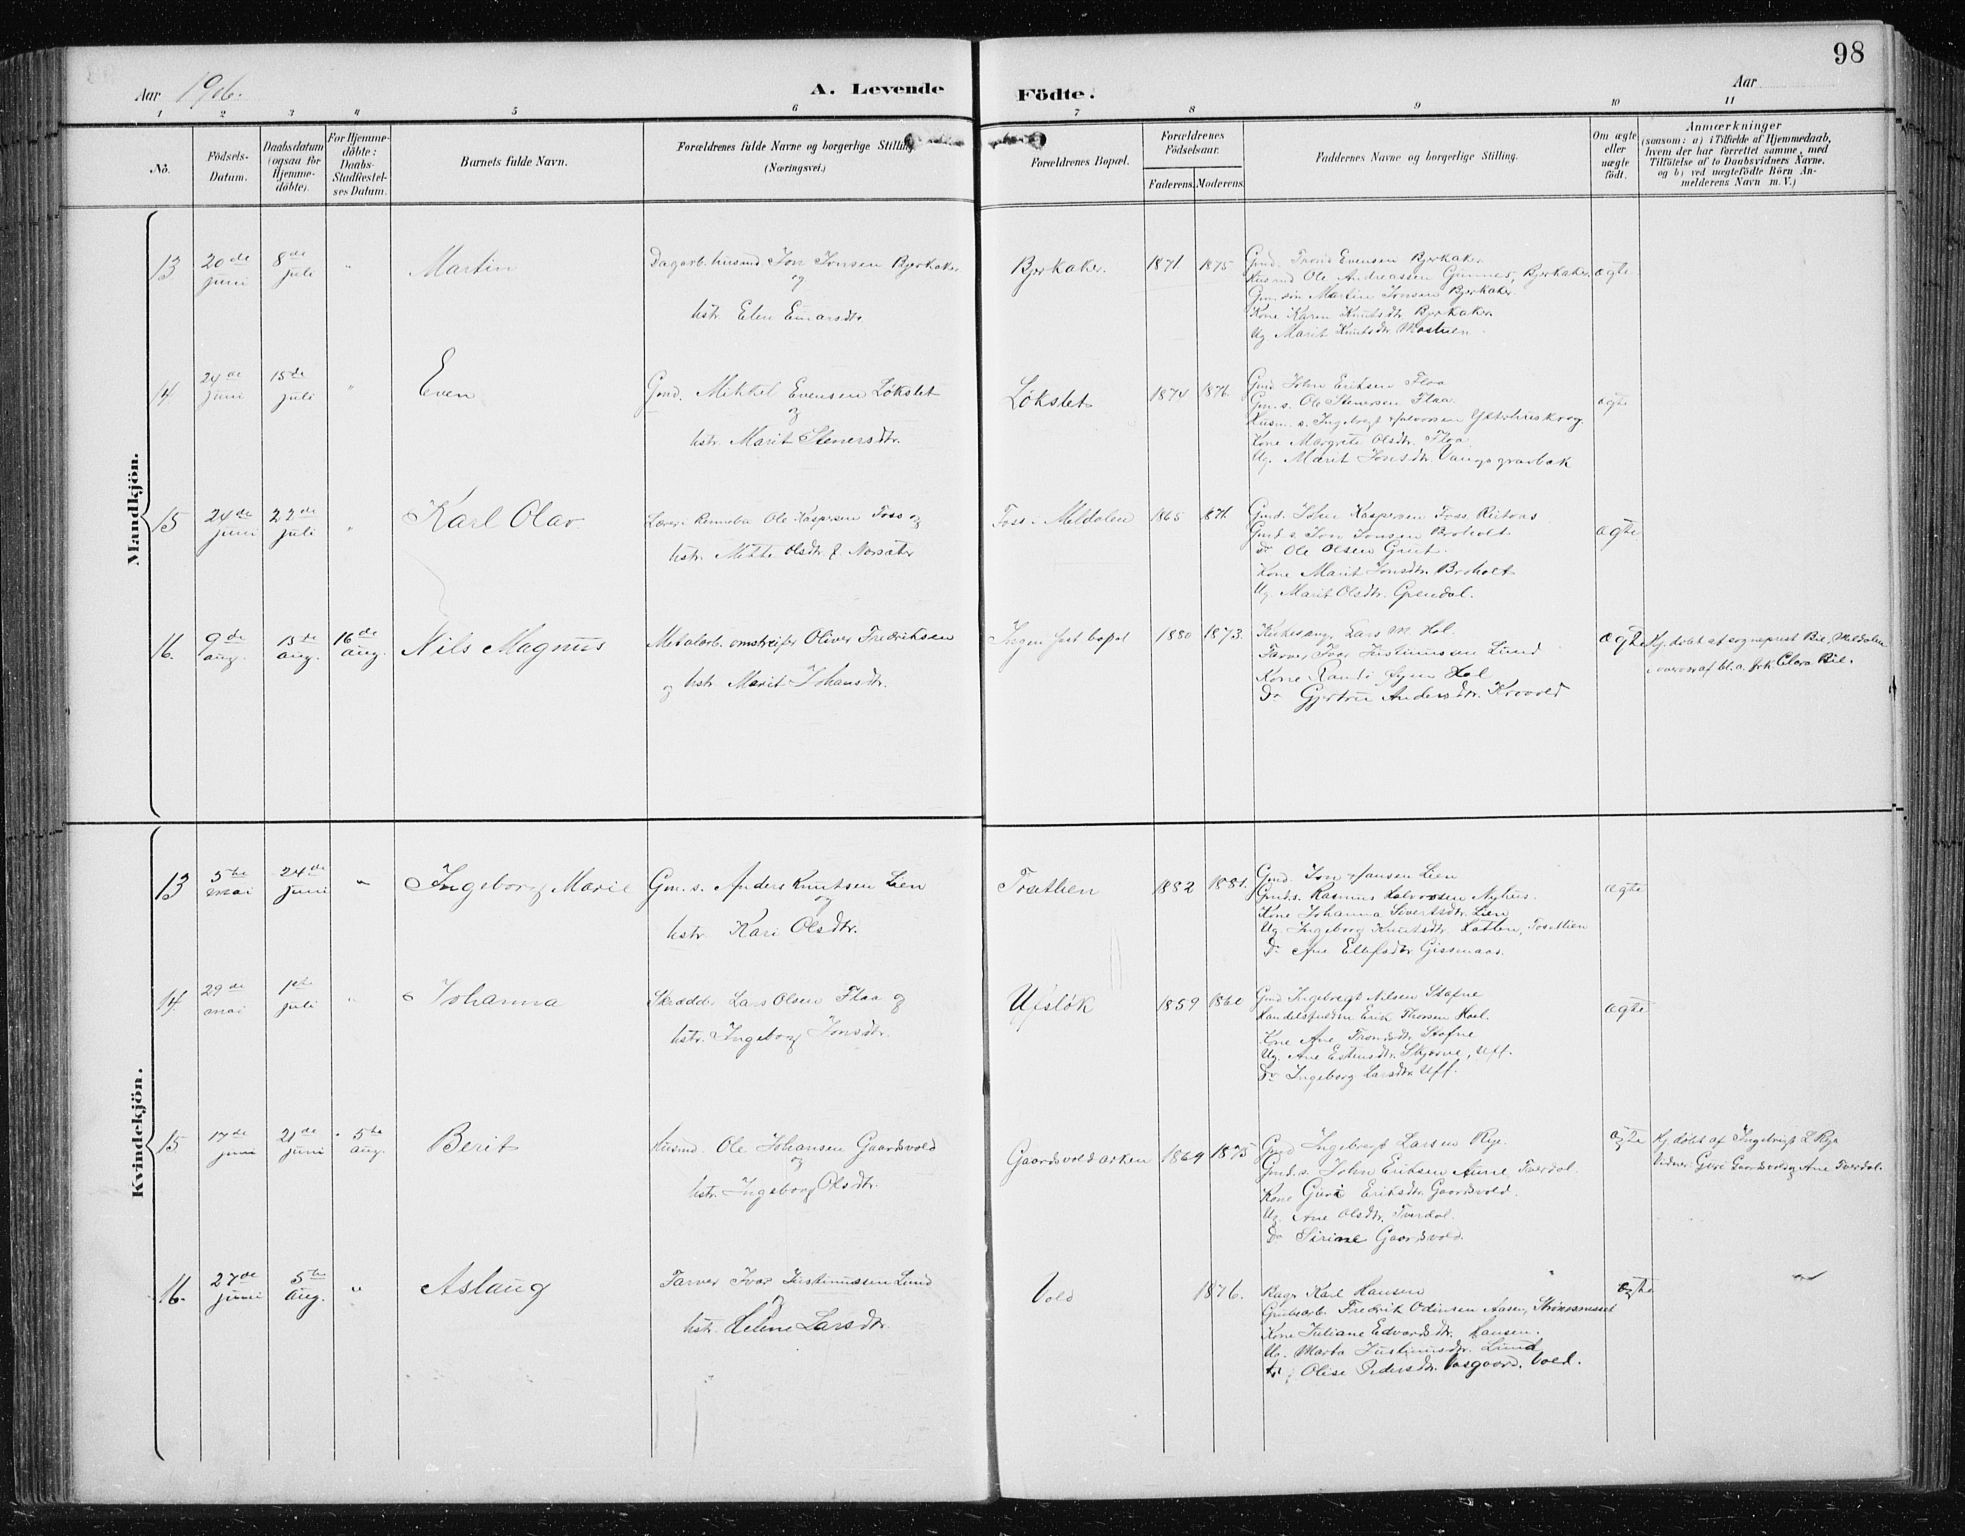 98
Aar 1906.
A. Levende Födte.
Aar
1 2 3 4 5 6 7 8 9 10 11
No.
Födsels-Datum.
Daabsdatum (ogsaa for Hjemme-döbte).
For Hjemme-döbte: Daabs-Stadfæstel-ses Datum.
Barnets fulde Navn.
Forældrenes fulde Navne og borgerlige Stilling
(Næringsvei.)
Forældrenes Bopæl.
Forældrenes Födselsaar.
Faderens. Moderens.
Faddernes Navne og borgerlige Stilling.
Om ægte eller uægte födt.
Anmærkninger
(saasom: a) i Tilfælde af Hjemmedaab, hvem der har forrettet samme, med Tilföielse af to Daabsvidners Navne. og b) ved uægtefödte Börn An-melderens Navn m. V.)
Mandkjön.
13 20de juni 8de juli " Martin
Dagarb. husmd. Jon Jonsen Bjerkaker
og
hstr. Elen Einarsdtr.
Bjerkaker. 1871. 1875
Gmd. Trond Evensen Bjerkaker
Husmd Ole Andreassen Gunnes, Bjerkaker.
Gm. søn Martin Jonsen Bjerkaker
Kone Karen Knutsdtr. Bjerkaker
Ug Marit Knutsdtr.
ægte
14 24de juni 15de juli " Even
Gmd. Mikkel Evensen Løkslet
og
hstr. Marit Stenersdtr.
Løkslet 1874 1876.
Gmd John Eriksen Flaa
Gm. s. Ole Stenersen Flaa
Husm. s. Ingebrigt Halvorsen
Kone Margrete Olsdtr. Flaa
Ug. Marit Jonsdtr. Vangsgravbak
ægte
15 24de juni 22de juli " Karl Olav
Lærer i Rennebu Ole Kaspersen Foss og
hstr. Mette Olsdtr. f.
Foss i Meldalen 1865 1871.
Gmd. John Kaspersen Foss,
Gmd. s. Jon Jonsen Broholt
Do Ole Olsen Grut
Kone Marit Jonsdtr. Broholt
Ug. Marit Olsdtr. Grendal.
ægte
16. 9de aug. 13de aug. 16de aug. Nils Magnus
Metalarb. omstreifer Oliver Fredriksen
og hstr Marit Johansdtr.
Ingen fast bopæl 1880 1873.
Kirkesanger Lars M. Hol.
Farver Iver Justinussen Lund
Kone Randi Hol
Do Gjertru Andersdtr. Krovold
ægte
Hj. døbt af sogneprest Bie, Meldalen
overvær af bl. a. frk Clara Bie.
Kvindekjön.
13 5te mai 24de juni " Ingeborg Marie
Gm. s. Anders Knutsen Lien
og
hstr. Kari Olsdtr.
Trætlien 1882 1881.
Gmd. Jon Hansen Lien
Gmd. s. Rasmus Halvorsen Nyhus
Kone Johanna Sivertsdtr. Lien
Ug. Ingeborg Knutsdtr.
Do Ane Ellefsdtr Gissmaas.
ægte
14. 29de mai 1ste juli " Johanna
Skrædder Lars Olsen Flaa og
hstr. Ingeborg Jonsdtr.
1859 1860
Gmd Ingebrigt Nilsen Stafne
Handelsfuldm Erik Thorsen Hoel.
Kone Ane Trondsdtr. Stafne
Ug. Ane Estensdtr.
Do Ingeborg Larsdtr.
ægte
15 17de juni 21de juni 5te aug. Berit
Husmd. Ole Johansen Gaardsvold
og
hstr. Ingeborg Olsdtr.
Gaardsvoldarken 1864 1875
Gmd Ingebrigt Larsen Rye.
Gmd. s. John Eriksen Aune Tverdal.
Kone Guri Eriksdtr. Gaardsvold.
Ug. Ane Olsdtr. Tverdal.
Do Sirine Gaardsvold.
ægte
Hj. døbt af Ingebrigt L Rye
Vidner: Guri Gaardsvold og Ane Tverdal.
16. 27de juni 5te aug. " Aslaug
Farver Ivar Justinussen Lund
og
hstr. Helene Larsdtr.
Vold 1876.
Bager Karl Hansen
Grubearb. Fredrik Odinsen Aasen,
Kone Juliane Edvardsdtr. Hansen.
Ug. Marta Justinusdtr. Lund
Olise Pedersdtr. Vold.
ægte